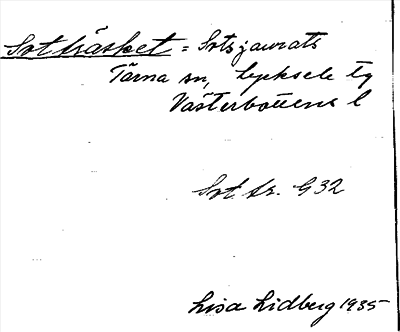 Sotträsket = Sotsjaurats
Tärna sn, Lycksele tg
Västerbottens l
Sot. tr. G32
Lisa Lidberg 1935